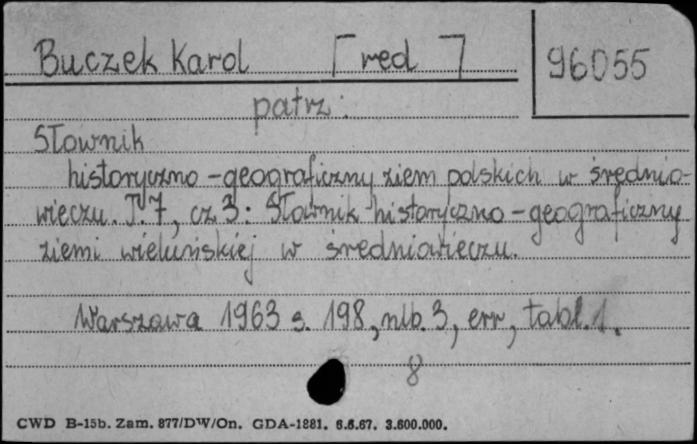 Buczek Karol [red]
96055
patrz:
Słownik
historyczno-geograficzny ziem polskich w średnio-
wieczu. T. 7, cz. 3: Słownik historyczno-geograficzny
ziemi wieluńskiej w średniowieczu.
Warszawa 1963 s. 198, nlb. 3, err, tabl. 1.
8
CWD B-15b. Zam. 877/DW/On. GDA-1881. 6.6.67. 3.600.000.